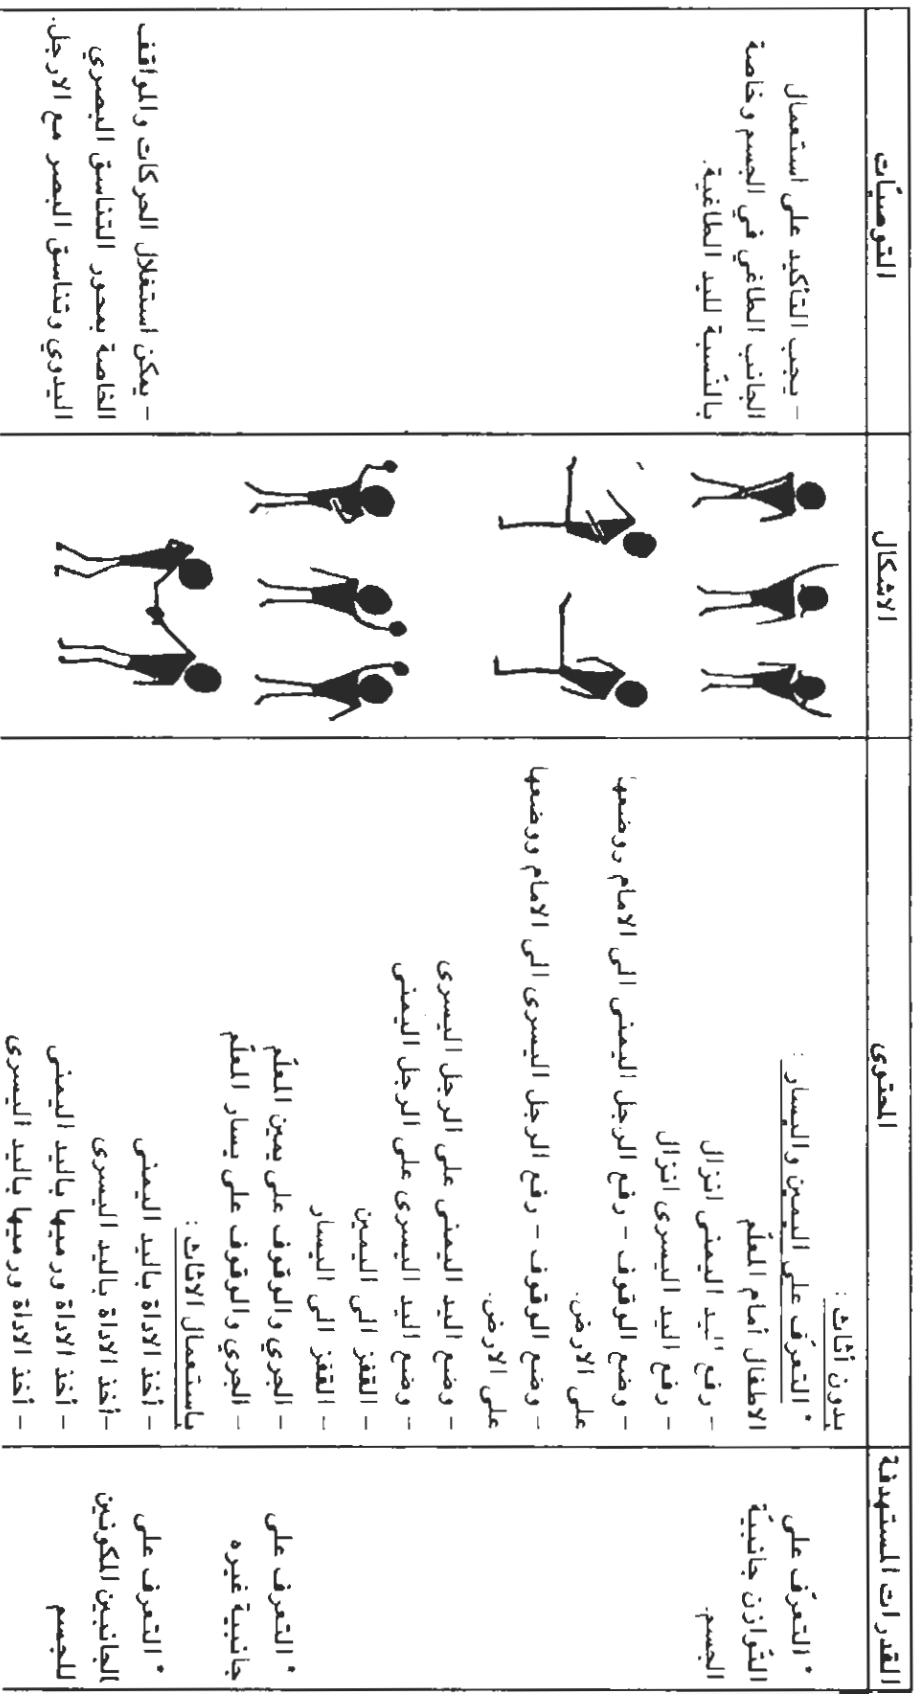 القدرات المستهدفة
المحتوى
الاشكال
التوصيّات
* التعرّف على
التّوازن جانبيّة
الجسم.
* التعرف على
جانبية غيره
* التعرف على
الجانبين المكونين
للجسم
بدون أثاث :
* التعرّف على اليمين واليسار :
الاطفال أمام المعلّم
- رفع اليد اليمنى انزال
- رفع اليد اليسرى انزال
- وضع الوقوف - رفع الرجل اليمنى الى الامام ووضعها
على الارض.
- وضع الوقوف - رفع الرجل اليسرى الى الامام ووضعها
على الارض.
- وضع اليد اليمنى على الرجل اليسرى
- وضع اليد اليسرى على الرجل اليمنى
- القفز الى اليمين
- القفز الى اليسار
- الجري والوقوف على يمين المعلّم
- الجري والوقوف على يسار المعلّم
باستعمال الاثاث :
- أخذ الاداة باليد اليمنى
- أخذ الاداة باليد اليسرى
- أخذ الاداة ورميها باليد اليمنى
- أخذ الاداة ورميها باليد اليسرى
- يجب التأكيد على استعمال
الجانب الطاغي في الجسم وخاصة
بالنّسبة لليد الطاغية.
- يمكن استغلال الحركات والمواقف
الخاصة بمحور التناسق البصري
اليدوي وتناسق البصر مع الارجل.